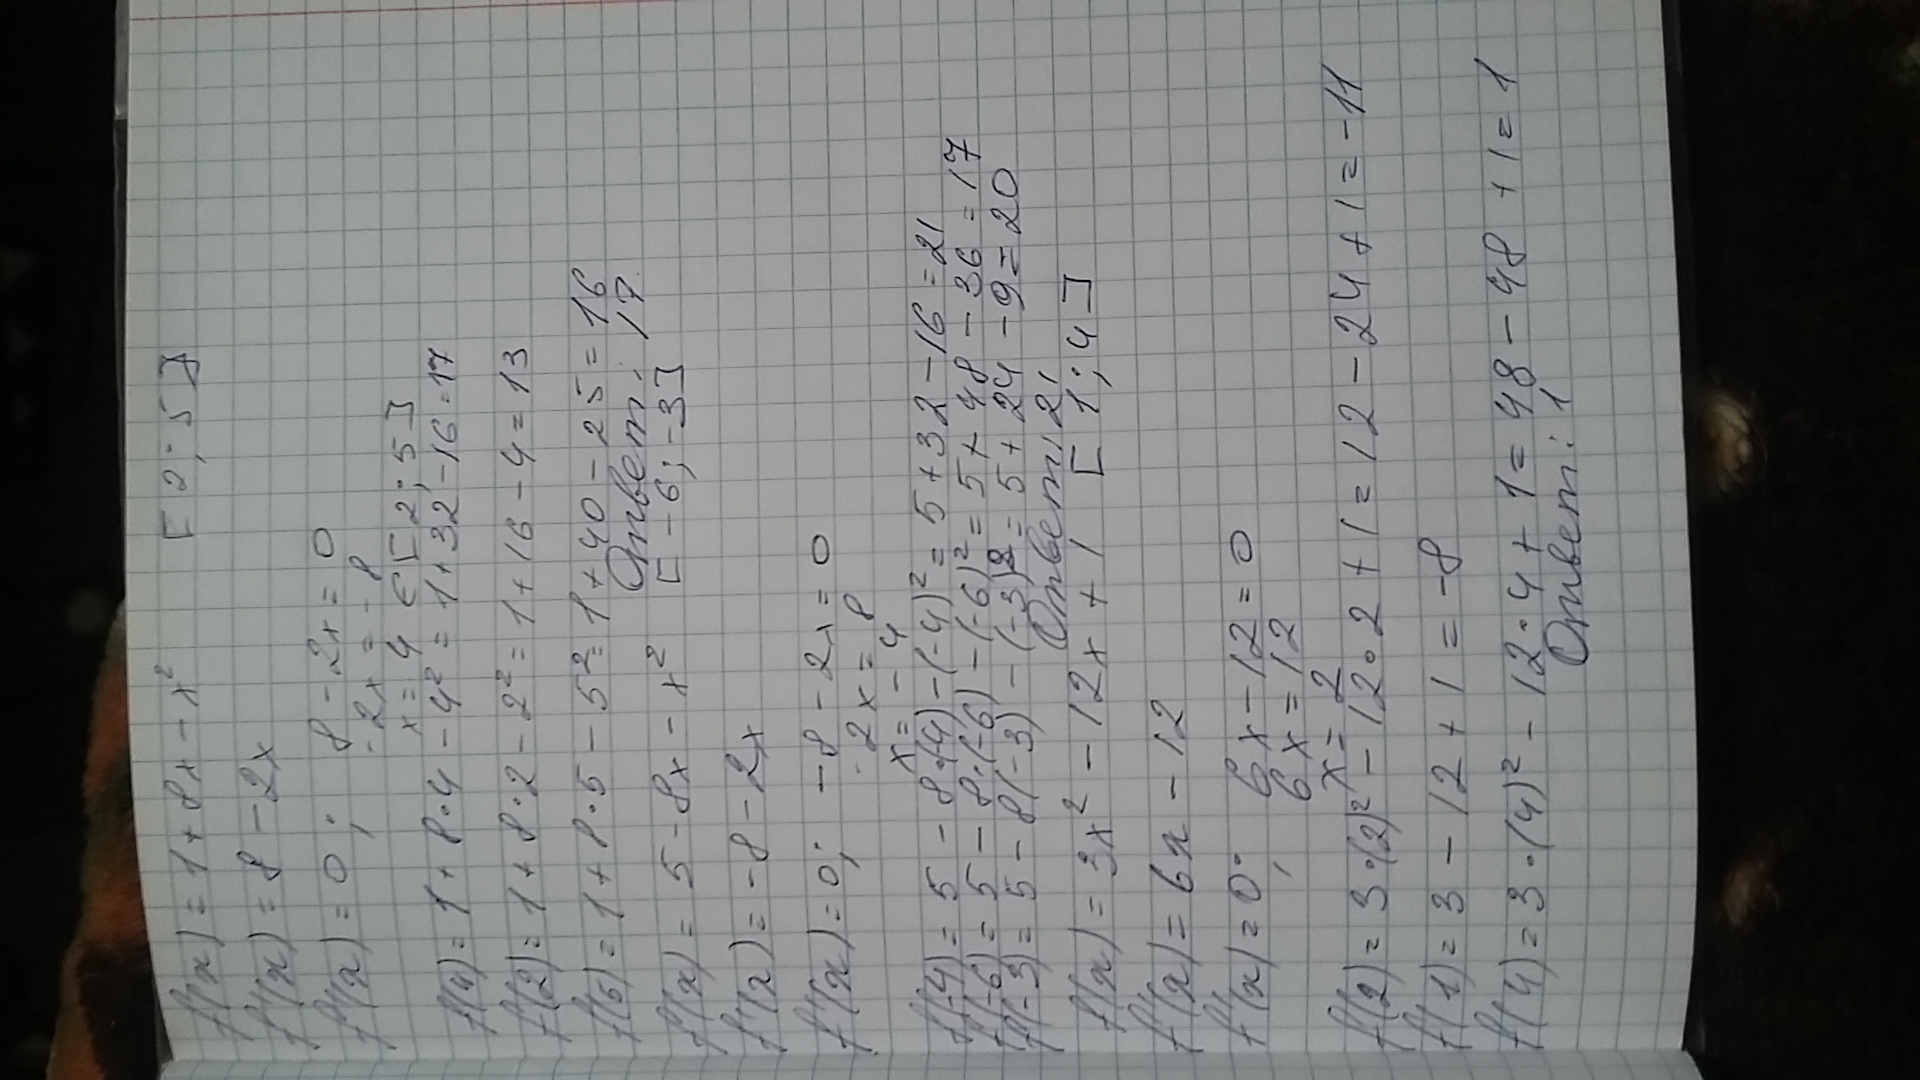 f(x) = 1 + 8x - x² [2; 5]
f'(x) = 8 - 2x
f'(x) = 0; 8 - 2x = 0
-2x = -8
x = 4 ∈ [2; 5]
f(4) = 1 + 8·4 - 4² = 1 + 32 - 16 = 17
f(2) = 1 + 8·2 - 2² = 1 + 16 - 4 = 13
f(5) = 1 + 8·5 - 5² = 1 + 40 - 25 = 16
Ответ: 17
f(x) = 5 - 8x - x² [-6; -3]
f'(x) = -8 - 2x
f'(x) = 0; -8 - 2x = 0
-2x = 8
x = -4
f(-4) = 5 - 8·(4) - (-4)² = 5 + 32 - 16 = 21
f(-6) = 5 - 8·(-6) - (-6)² = 5 + 48 - 36 = 17
f(-3) = 5 - 8(-3) - (-3)² = 5 + 24 - 9 = 20
Ответ: 21
f(x) = 3x² - 12x + 1 [1; 4]
f'(x) = 6x - 12
f'(x) = 0; 6x - 12 = 0
6x = 12
x = 2
f(2) = 3·(2)² - 12·2 + 1 = 12 - 24 + 1 = -11
f(1) = 3 - 12 + 1 = -8
f(4) = 3·(4)² - 12·4 + 1 = 48 - 48 + 1 = 1
Ответ: 1